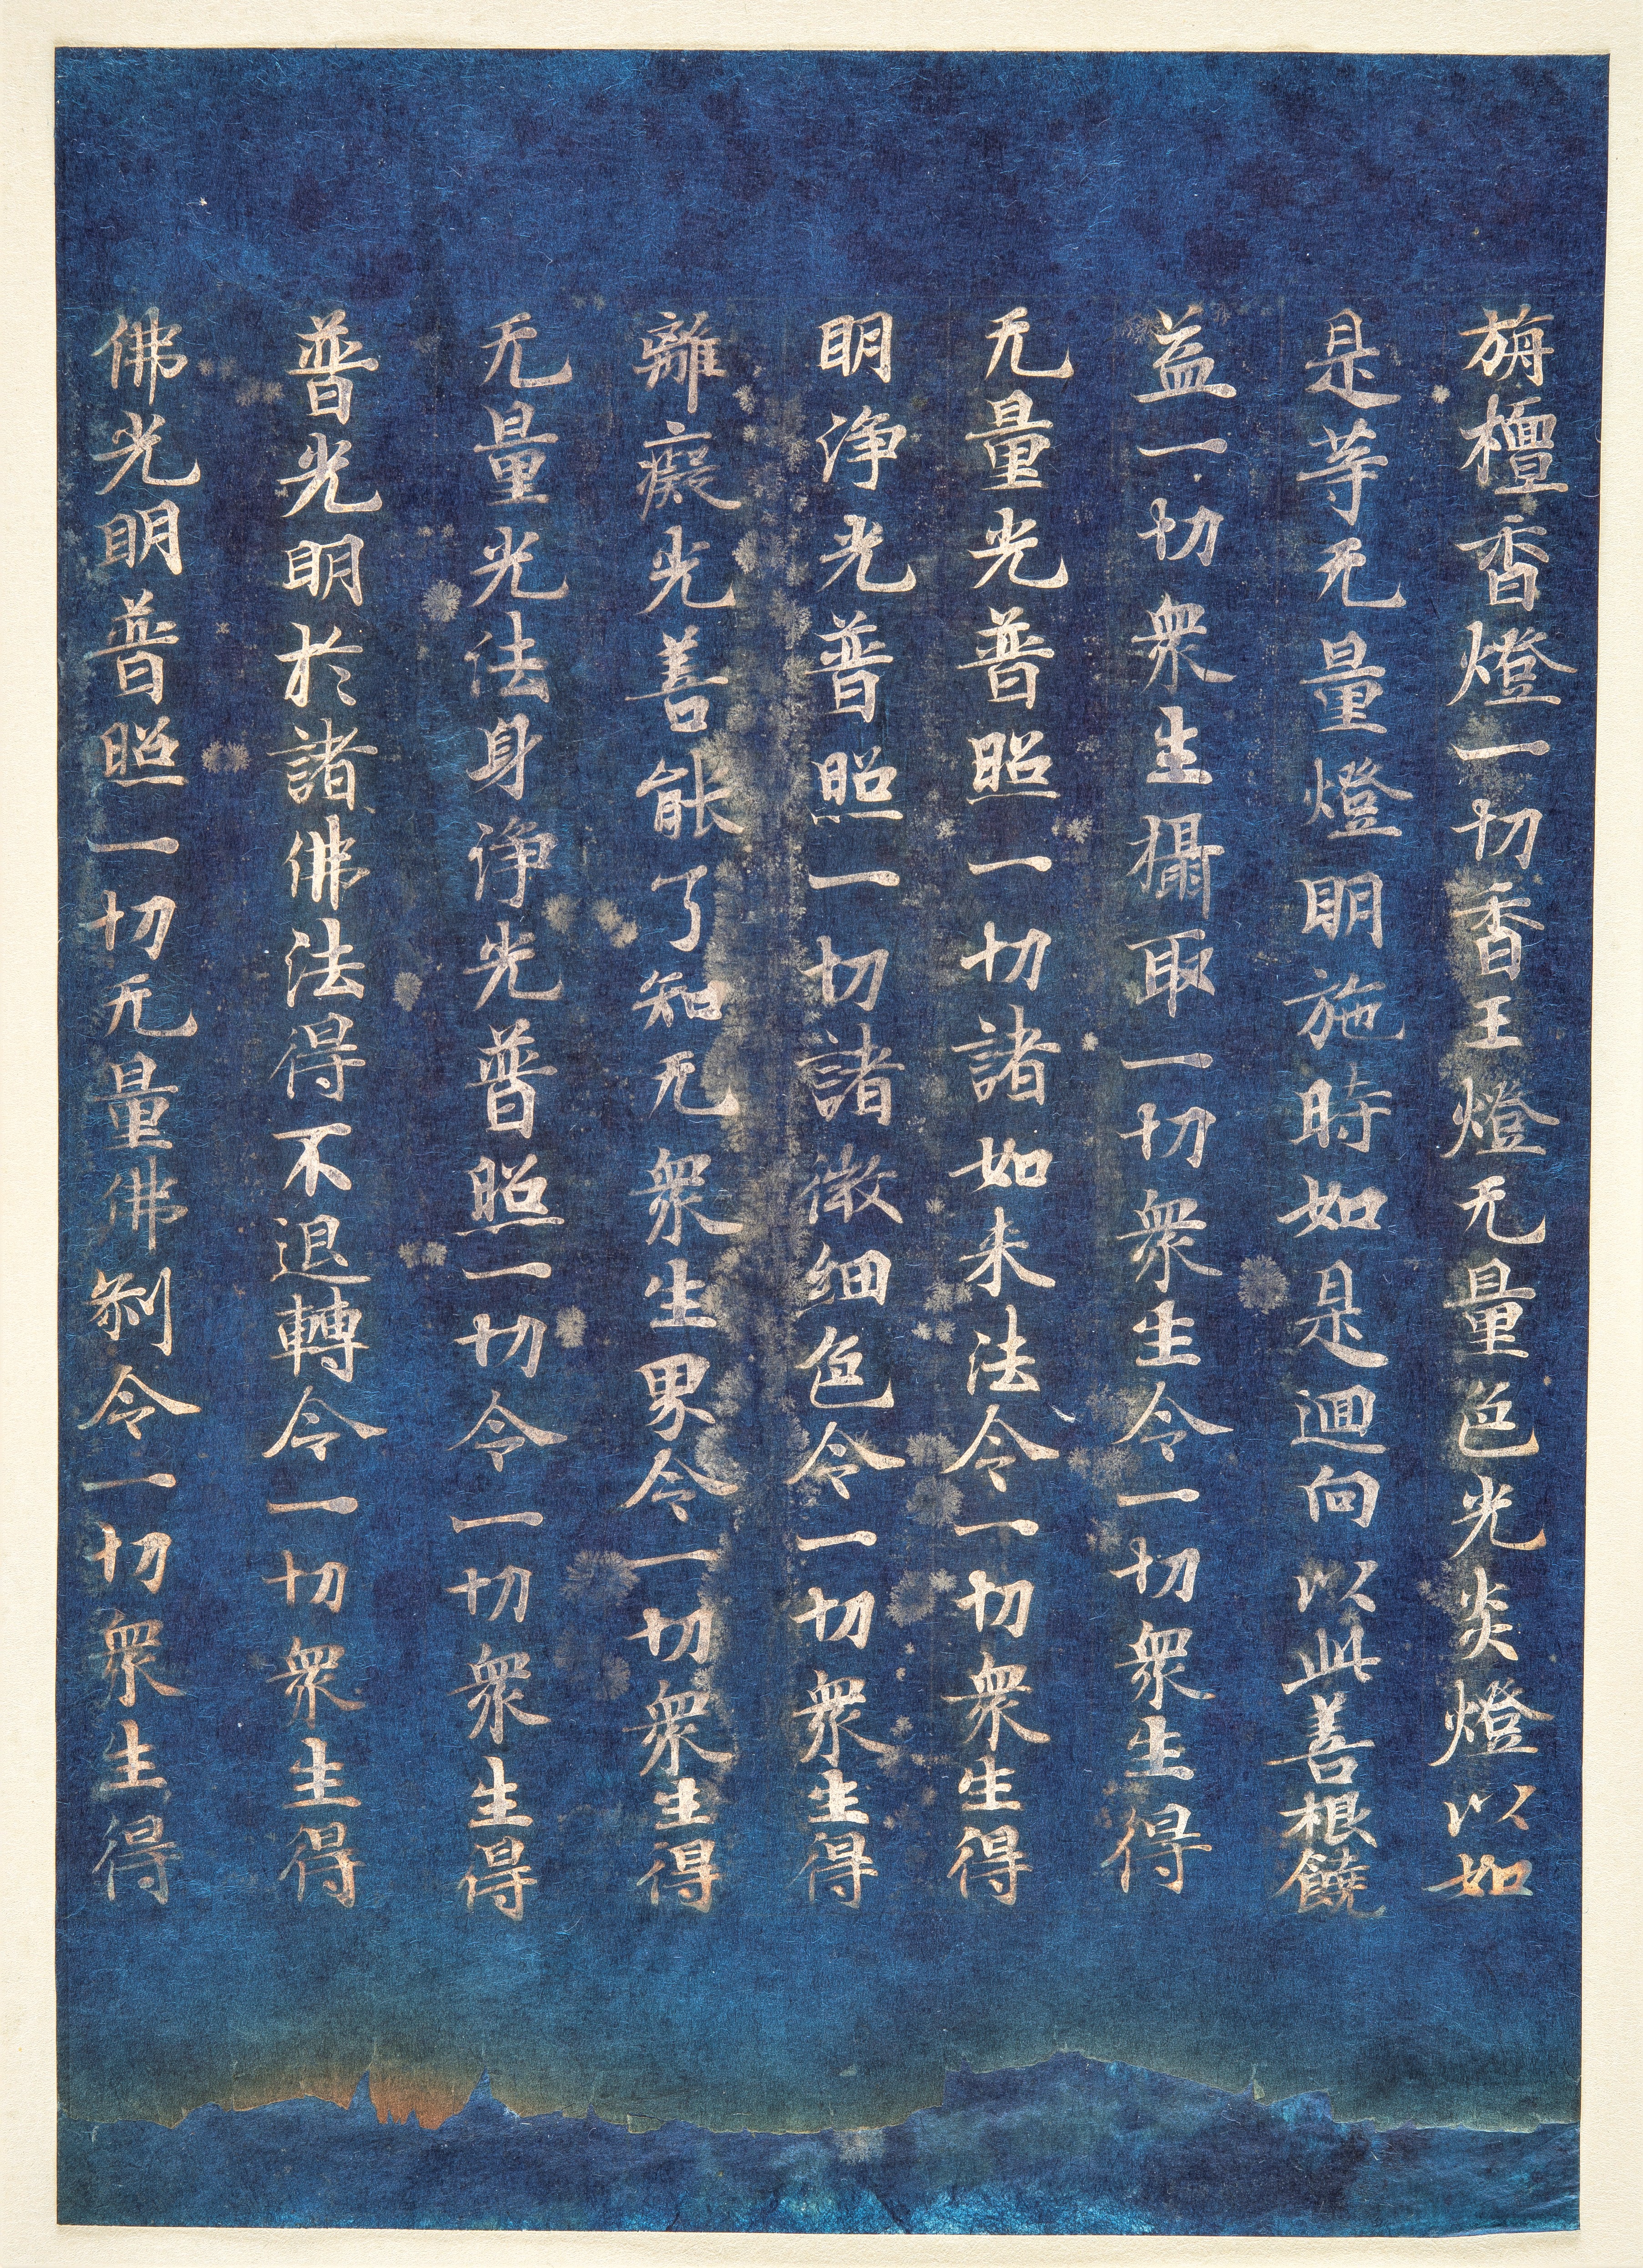 旃檀香燈一切香王燈无量色光炎燈以如
是等无量燈明施時如是迴向以此善根饒
益一切衆生攝取一切衆生令一切衆生得
无量光普照一切諸如来法令一切衆生得
明淨光普照一切諸微細色令一切衆生得
離癡光善能了知无衆生界令一切衆生得
无量光法身淨光普照一切令一切衆生得
普光明於諸佛法得不退轉令一切衆生得
佛光明普照一切无量佛刹令一切衆生得